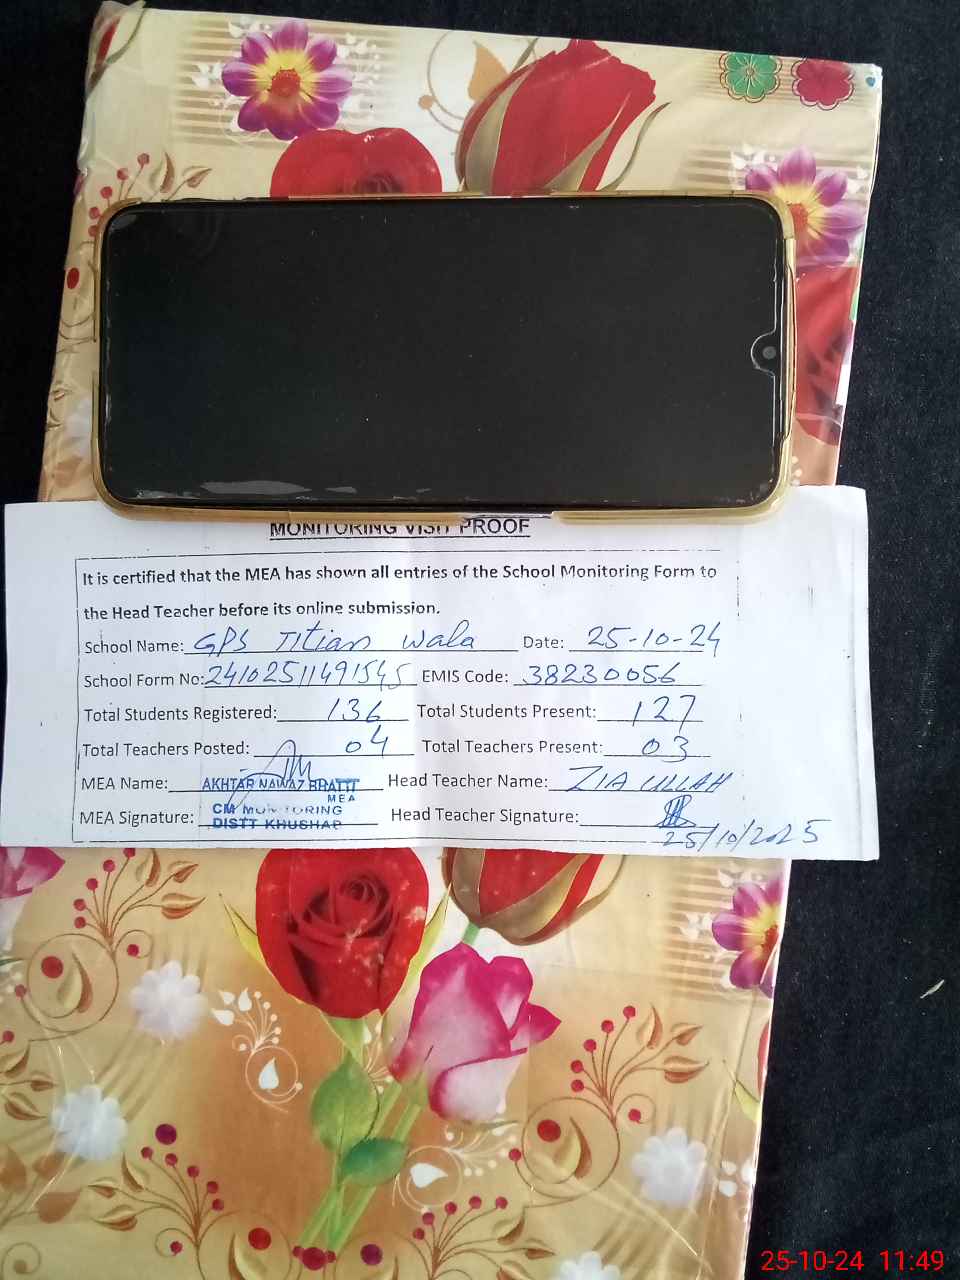 MONITORING VISIT PROOF
It is certified that the MEA has shown all entries of the School Monitoring Form to
the Head Teacher before its online submission.
School Name: GPS Titian Wala Date: 25-10-24
School Form No: 24102511491545 EMIS Code: 38230056
Total Students Registered: 136 Total Students Present: 127
Total Teachers Posted: 04 Total Teachers Present: 03
MEA Name: AKHTAR NAWAZ BHATTI Head Teacher Name: ZIA ULLAH
MEA
MEA Signature: CM MONITORING Head Teacher Signature:
DISTT KHUSHAB 25/10/2025
25-10-24 11:49